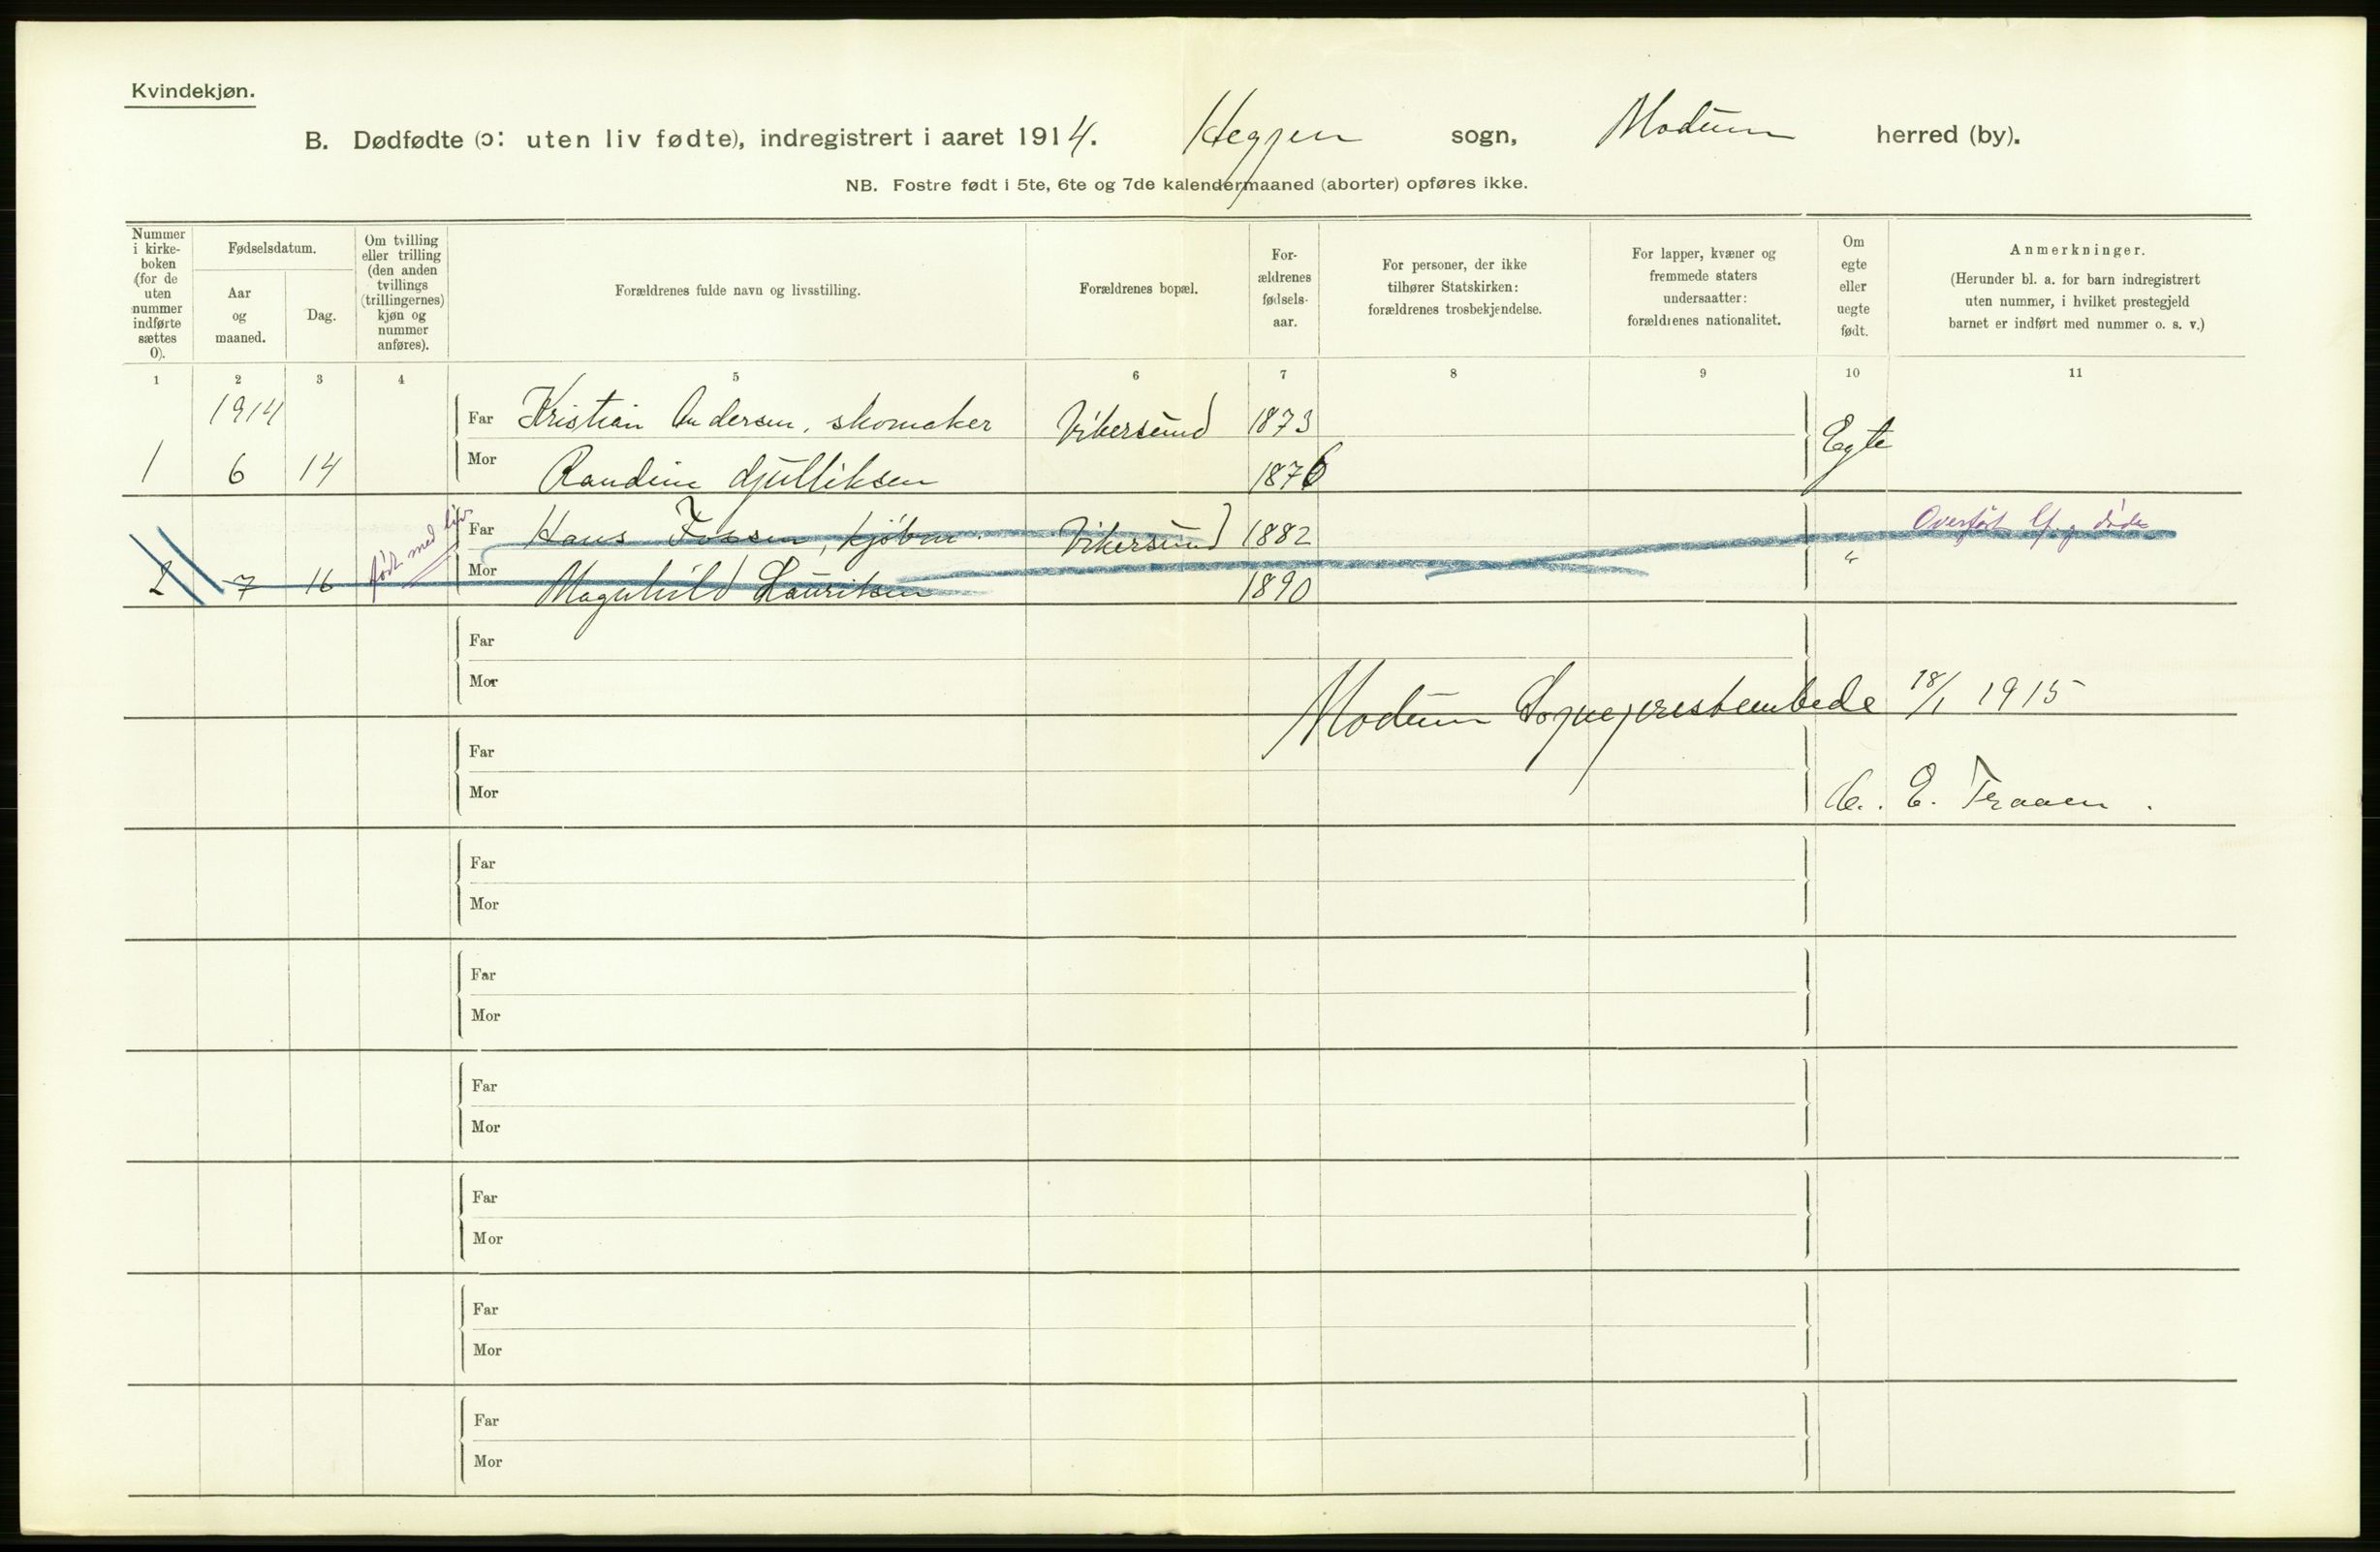 Kvindekjøn.
B. Dødfødte (ɔ: uten liv fødte), indregistrert i aaret 1914. Heggen sogn, Modum herred (by).
NB. Fostre født i 5te, 6te og 7de kalendermaaned (aborter) opføres ikke.
Nummer
i kirke-
boken
(for de
uten
nummer
indførte
sættes
0).
Fødselsdatum.
Aar
og
maaned.
Dag.
Om tvilling
eller trilling
(den anden
tvillings
(trillingernes)
kjøn og
nummer
anføres).
Forældrenes fulde navn og livsstilling.
Forældrenes bopæl.
For-
ældrenes
fødsels-
aar.
For personer, der ikke
tilhører Statskirken:
forældrenes trosbekjendelse.
For lapper, kvæner og
fremmede staters
undersaatter:
forældrenes nationalitet.
Om
egte
eller
uegte
født.
Anmerkninger.
(Herunder bl. a. for barn indregistrert
uten nummer, i hvilket prestegjeld
barnet er indført med nummer o. s. v.)
1 2 3 4 5 6 7 8 9 10 11
1914 Far Kristian Andersen, skomaker Vikersund 1873
Egte
1 6 14 Mor Randine Gulliksen 1876
født med liv Far Hans Fossen, kjøbm. Vikersund 1882 Overført lf. og døde
2 7 16 Mor Magnhild Lauritsen 1890 "
Far
Mor
Modum Sogneprestembede 18/1 1915
Far
Mor
E. Traaen.
Far
Mor
Far
Mor
Far
Mor
Far
Mor
Far
Mor
Far
Mor